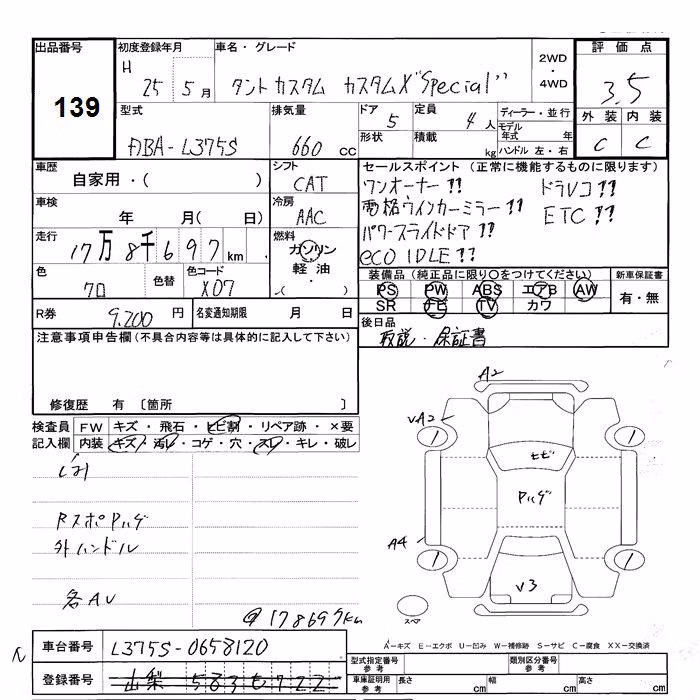 出品番号
139
初度登録年月
H 25 5月
車名・グレード
タントカスタム カスタムX "Special"
2WD・4WD
評価点
3.5
外装 内装
C C
型式
DBA-L375S
排気量
660 cc
ドア 5
形状
定員 4人
積載 kg
ディーラー・並行
モデル年式 年
ハンドル 左・右
車歴
自家用・( )
シフト
CAT
セールスポイント (正常に機能するものに限ります)
ワンオーナー!! ドラレコ!!
電格ウインカーミラー!! ETC!!
パワースライドドア!!
eco IDLE!!
車検
年 月( 日)
冷房
AAC
走行
17万8千697km
燃料
ガソリン
軽油
・( )
色
クロ
色替
色コード
X07
装備品 (純正品に限り○をつけてください)
PS PW ABS エアB AW
SR ナビ TV カワ
新車保証書
有・無
R券
9,200円
名変通知期限 月 日
後日品
取説・保証書
注意事項申告欄(不具合内容等は具体的に記入して下さい)
修復歴 有 〔箇所 〕
検査員記入欄
FW キズ・飛石・ヒビ割・リペア跡・×要
内装 キズ・汚レ・コゲ・穴・スレ・キレ・破レ
外ハンドル
各AU
178697km
A2
A2
1 1
ヒビ
ハゲ
A4
1 1
V3
スペア
A-キズ E-エクボ U-凹み W-補修跡 S-サビ C-腐食 XX-交換済
車台番号
L375S-0658120
登録番号
山梨
型式指定番号 参考
類別区分番号 参考
車庫証明用 参考
長さ cm
幅 cm
高さ cm